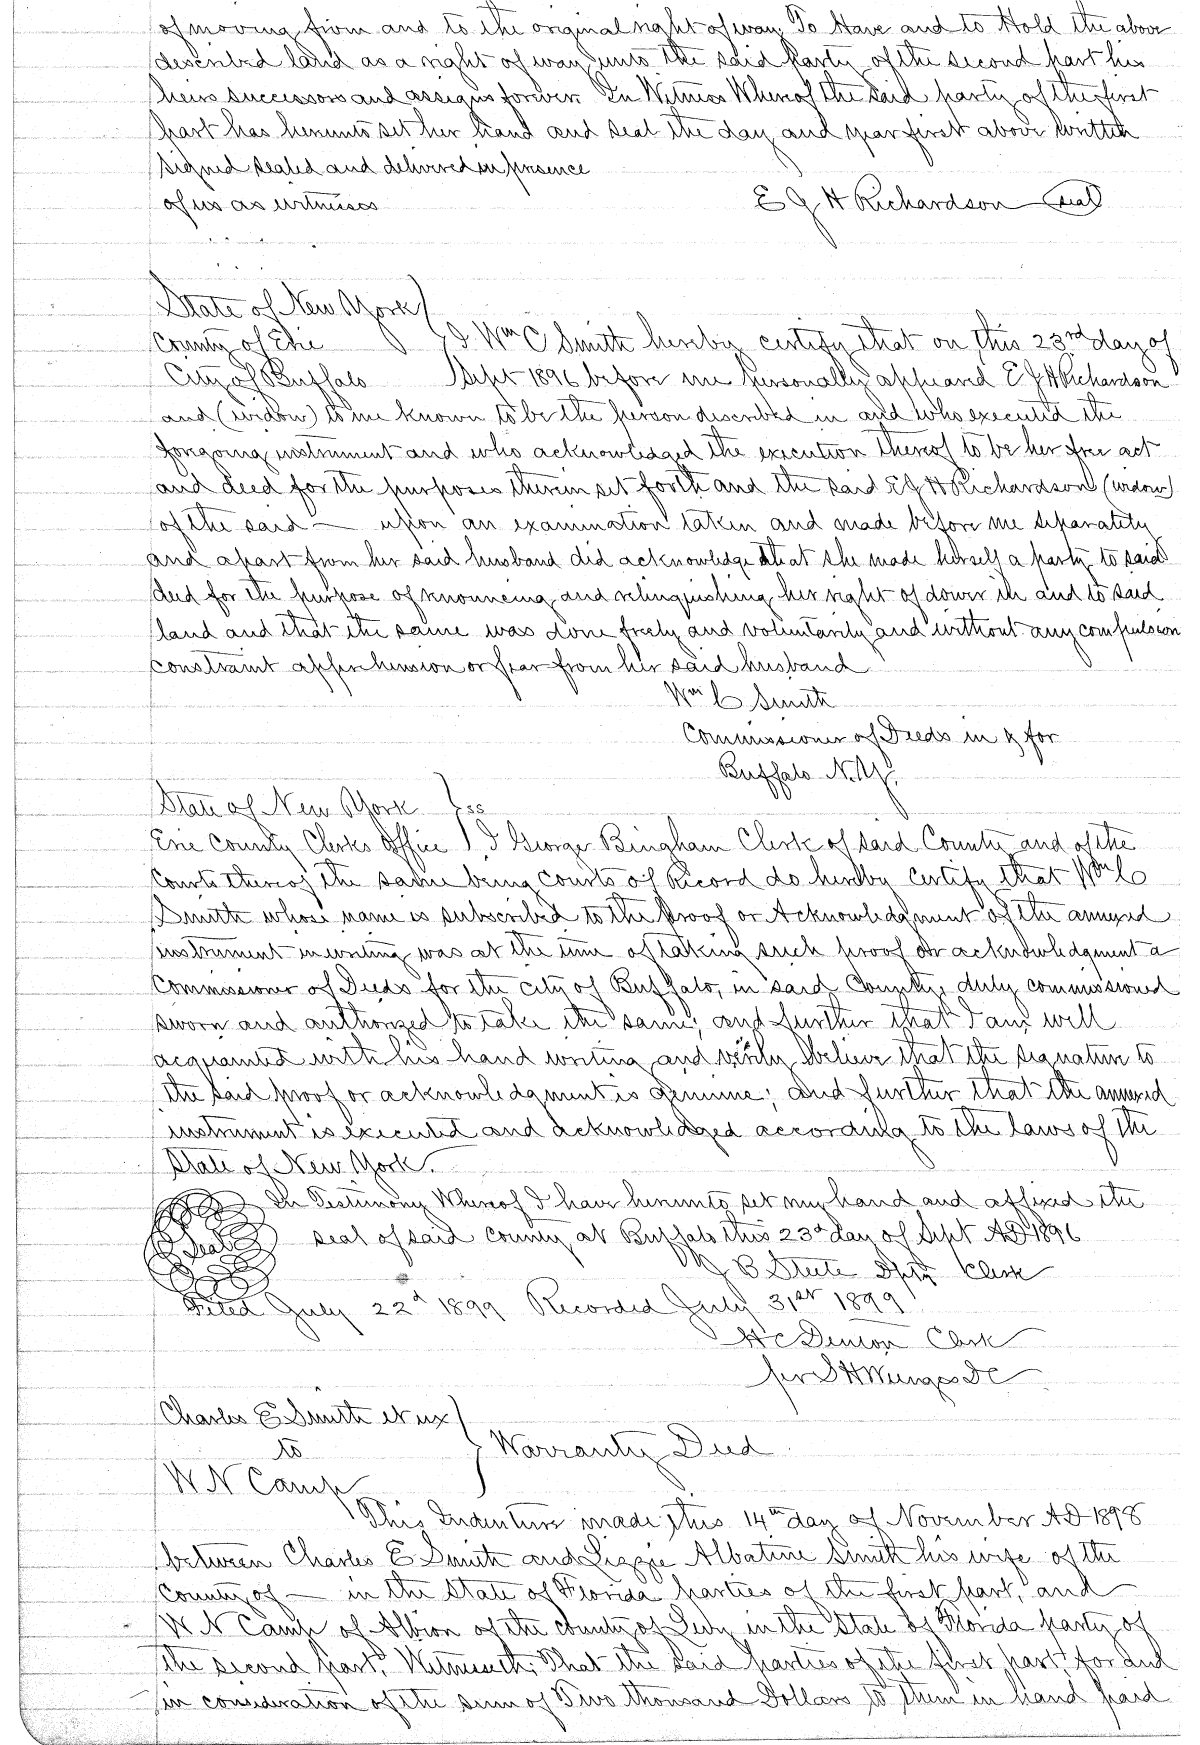 of moving from and to the original right of way, To Have and to Hold the above
described land as a right of way, unto the said party of the second part his
heirs successors and assigns forever. In Witness Whereof the said party of the first
part has hereunto set her hand and seal the day and year first above written
signed sealed and delivered in presence
of us as witnesses E J H Richardson seal
State of New York
County of Erie I Wm C Smith hereby certify that on this 23rd day of
City of Buffalo Sept 1896 before me personally appeared E J H Richardson
and (widow) to me known to be the person described in and who executed the
foregoing instrument and who acknowledged the execution thereof to be her free act
and deed for the purposes therein set forth and the said E J H Richardson (widow)
of the said — upon an examination taken and made before me separately
and apart from her said husband did acknowledge that she made herself a party to said
deed for the purpose of renouncing and relinquishing her right of dower in and to said
land and that the same was done freely and voluntarily and without any compulsion
constraint apprehension or fear from her said husband
Wm C Smith
Commissioner of Deeds in & for
Buffalo N.Y.
State of New York } ss
Erie County Clerks Office } I George Bingham Clerk of said County and of the
Courts thereof the same being Courts of Record do hereby certify that Wm C
Smith whose name is subscribed to the Proof or Acknowledgment of the annexed
instrument in writing was at the time of taking such proof or acknowledgment a
Commissioner of Deeds for the city of Buffalo, in said County, duly commissioned
sworn and authorized to take the same; and further that I am well
acquainted with his hand writing and verily believe that the signature to
the said proof or acknowledgment is genuine; and further that the annexed
instrument is executed and acknowledged according to the laws of the
State of New York.
In Testimony Whereof I have hereunto set my hand and affixed the
Seal seal of said county at Buffalo this 23d day of Sept AD 1896
B Steele Dpty Clerk
Filed July 22d 1899 Recorded July 31st 1899
H C Denton Clerk
per S H D C
Charles E Smith et ux
to } Warranty Deed
W N Camp
This Indenture made this 14th day of November AD 1898
between Charles E Smith and Lizzie Albatine Smith his wife of the
County of — in the State of Florida parties of the first part, and
W N Camp of Albion of the County of Levy in the State of Florida party of
the second part, Witnesseth, That the said parties of the first part, for and
in consideration of the sum of Two thousand Dollars to them in hand paid